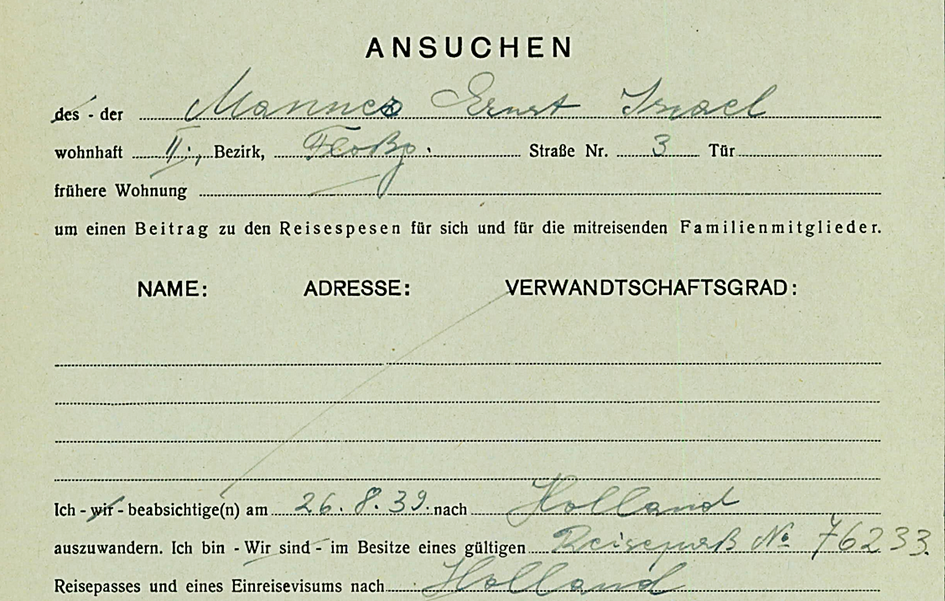 ANSUCHEN
des - der Mannes Ernst Israel
wohnhaft II., Bezirk, Floßg. Straße Nr. 3 Tür
frühere Wohnung
um einen Beitrag zu den Reisespesen für sich und für die mitreisenden Familienmitglieder.
NAME: ADRESSE: VERWANDTSCHAFTSGRAD:
Ich - wir - beabsichtige(n) am 26.8.39. nach Holland
auszuwandern. Ich bin - Wir sind - im Besitze eines gültigen Reisepaß No 76233.
Reisepasses und eines Einreisevisums nach Holland